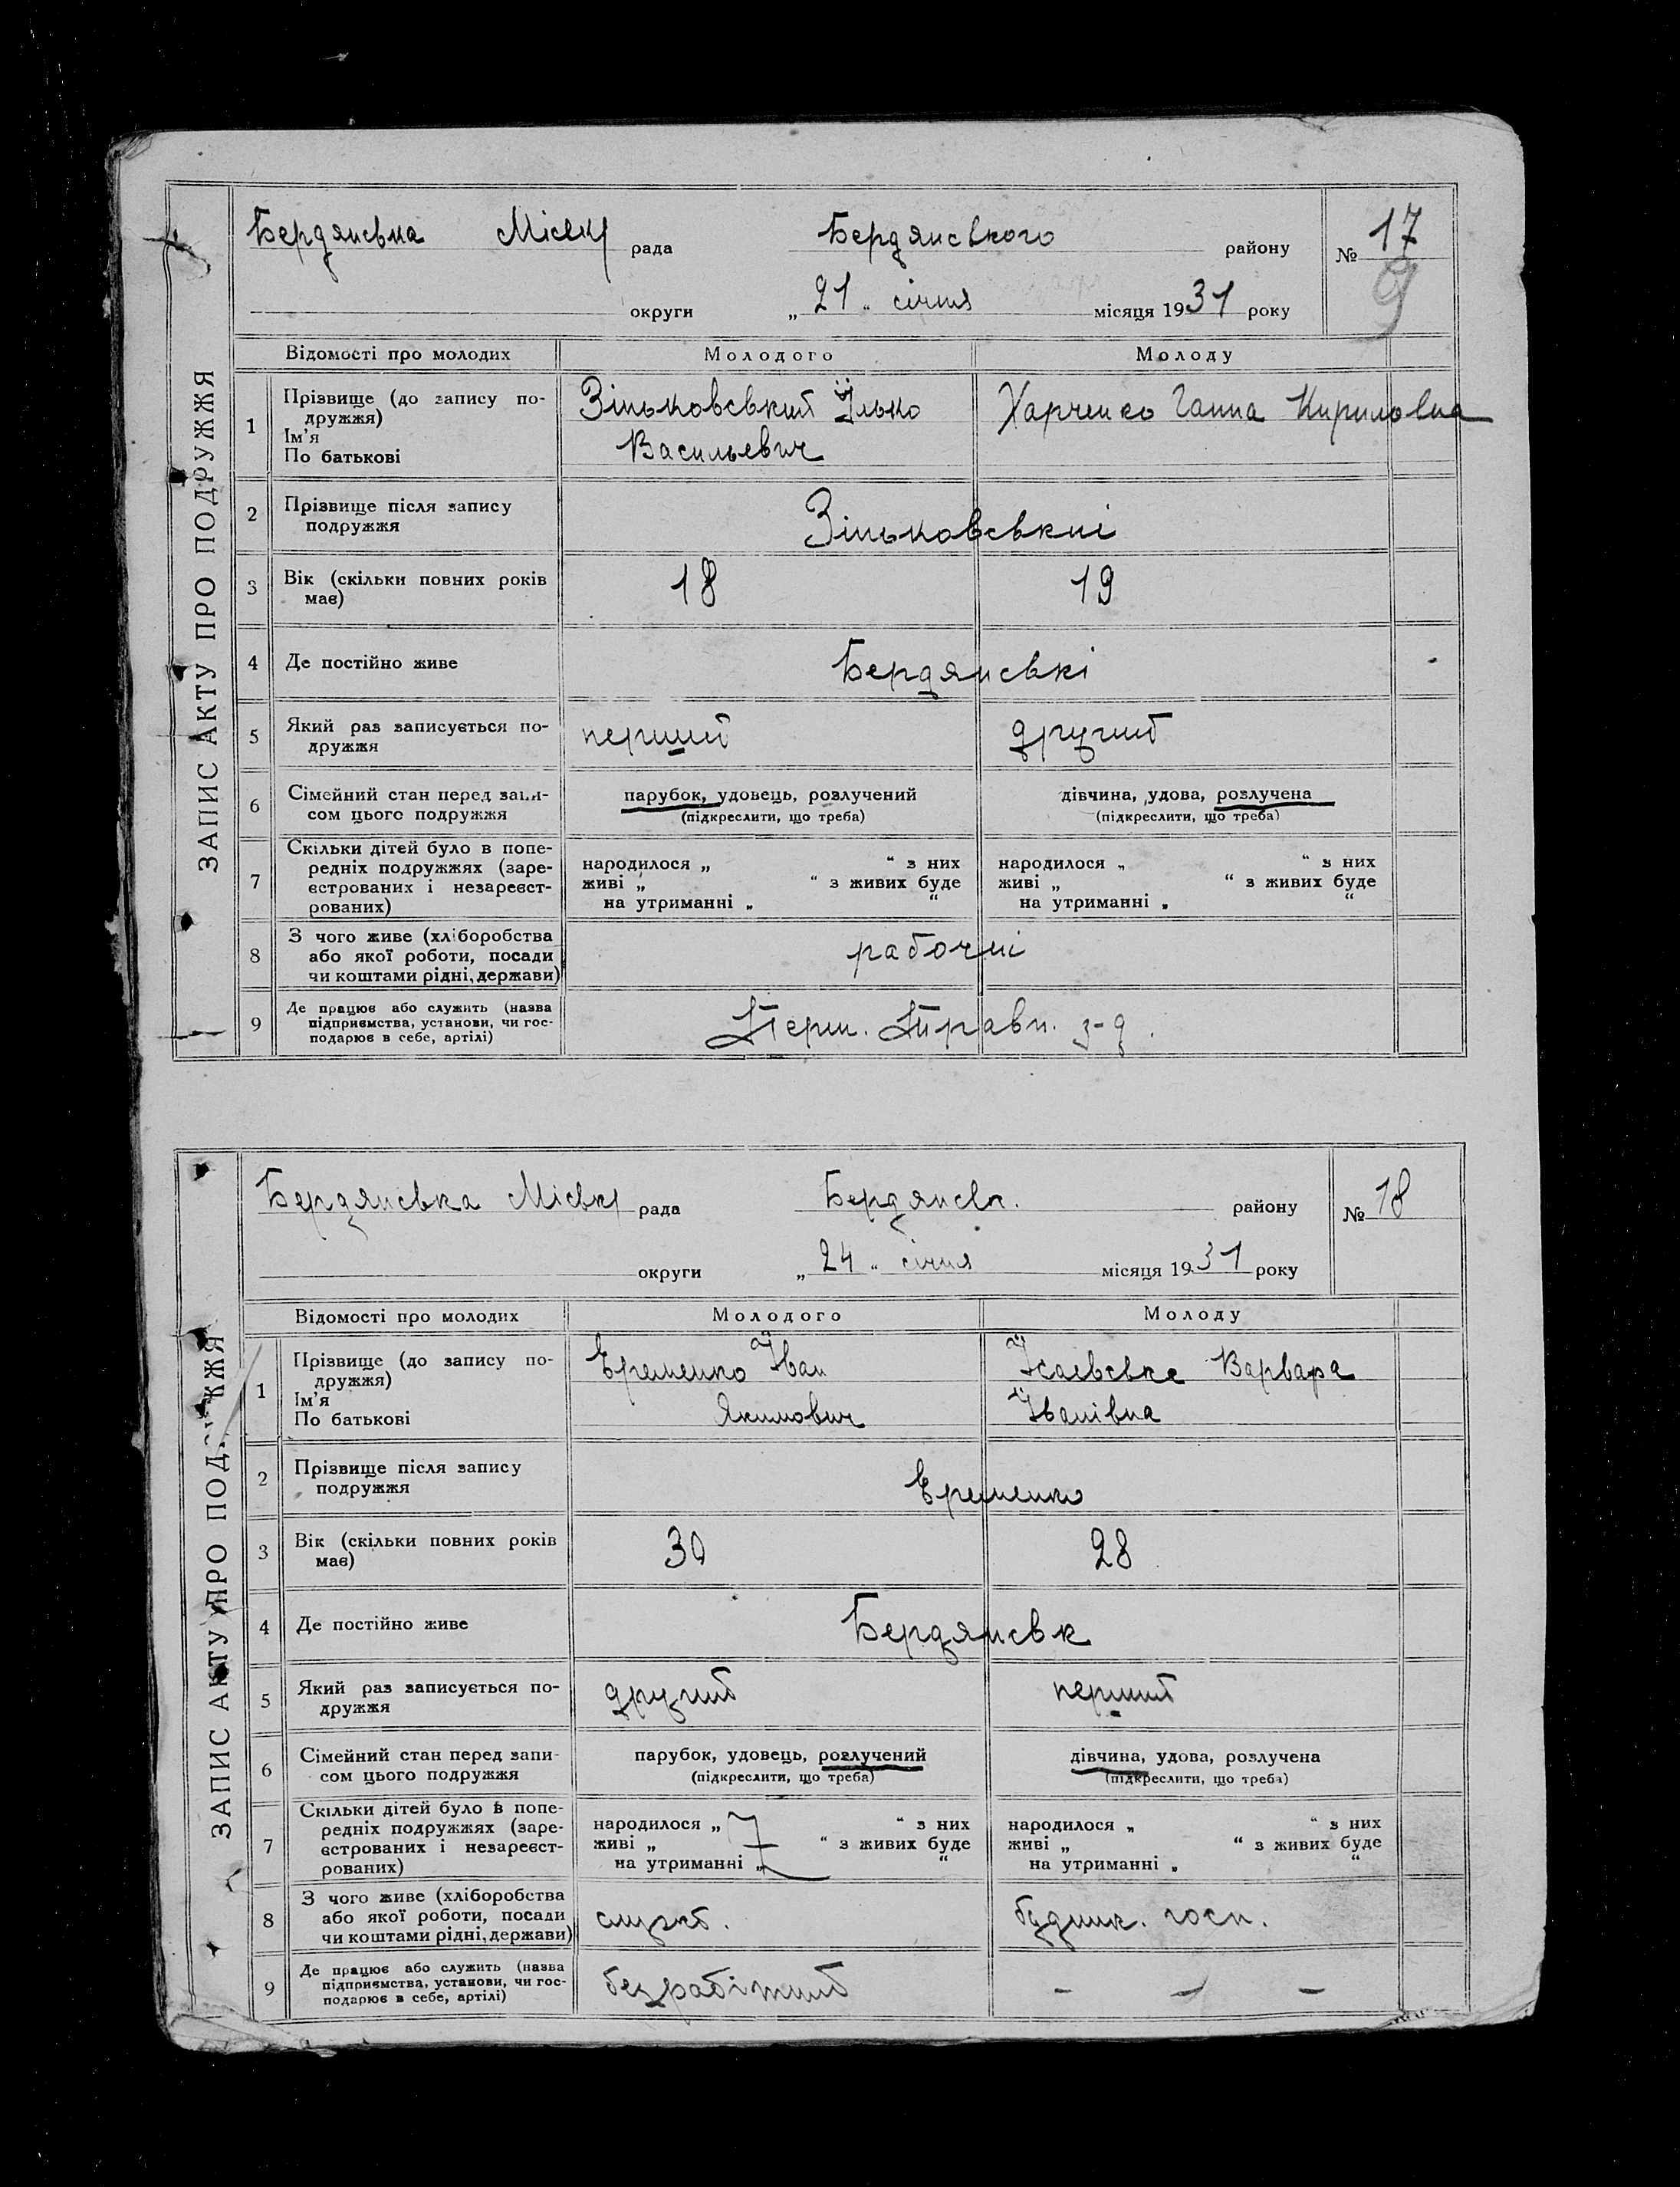 ЗАПИС АКТУ ПРО ПОДРУЖЖЯ
Бердянська Міськ рада Бердянського району № 17
9
округи „ 21 “ січня місяця 1931 року
Відомості про молодих Молодого Молоду
1 Прізвище (до запису по-
дружжя)
Ім'я
По батькові
Зіньковський Ілько
Васильевич
Харченко Ганна Кириловна
2 Прізвище після запису
подружжя
Зіньковські
3 Вік (скільки повних років
має)
18 19
4 Де постійно живе Бердянські
5 Який раз записується по-
дружжя
перший другий
6 Сімейний стан перед запи-
сом цього подружжя
парубок, удовець, розлучений
(підкреслити, що треба)
дівчина, удова, розлучена
(підкреслити, що треба)
7 Скільки дітей було в попе-
редніх подружжях (заре-
єстрованих і незареєст-
рованих)
народилося „ “ з них
живі „ “ з живих буде
на утриманні „ “
народилося „ “ з них
живі „ “ з живих буде
на утриманні „ “
8 З чого живе (хліборобства
або якої роботи, посади
чи коштами рідні, держави)
рабочиі
9 Де працює або служить (назва
підприємства, установи, чи гос-
подарює в себе, артілі)
Перш. Травн. з-д.
ЗАПИС АКТУ ПРО ПОДРУЖЖЯ
Бердянська Міськ рада Бердянськ. району № 18
округи „ 24 “ січня місяця 1931 року
Відомості про молодих Молодого Молоду
1 Прізвище (до запису по-
дружжя)
Ім'я
По батькові
Єременко Іван
Якимович
Ісаєвська Варвара
Іванівна
2 Прізвище після запису
подружжя
Єременко
3 Вік (скільки повних років
має)
30 28
4 Де постійно живе Бердянськ
5 Який раз записується по-
дружжя
другий перший
6 Сімейний стан перед запи-
сом цього подружжя
парубок, удовець, розлучений
(підкреслити, що треба)
дівчина, удова, розлучена
(підкреслити, що треба)
7 Скільки дітей було в попе-
редніх подружжях (заре-
єстрованих і незареєст-
рованих)
народилося „ “ з них
живі „ “ з живих буде
на утриманні „ “
народилося „ “ з них
живі „ “ з живих буде
на утриманні „ “
8 З чого живе (хліборобства
або якої роботи, посади
чи коштами рідні, держави)
служб. будинк. госп.
9 Де працює або служить (назва
підприємства, установи, чи гос-
подарює в себе, артілі)
безрабітний – – –